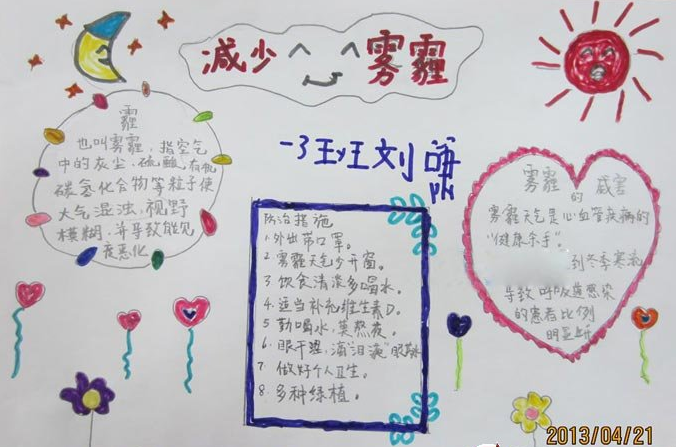 减少 雾霾
一3班刘
霾
也叫雾霾,指空气
中的灰尘、硫酸、有机
碳氢化合物等粒子使
大气混浊,视野
模糊,并导致能见
度恶化
防治措施
1.外出带口罩。
2.雾霾天气少开窗。
3.饮食清淡多喝水。
4.适当补充维生素D。
5.勤喝水,莫熬夜。
6.眼干涩,滴"泪滴"眼
7.做好个人卫生。
8.多种绿植。
雾霾的 威害
雾霾天气是心血管疾病的
"健康杀手"。
到冬季寒
导致呼吸道感染
的患者比例
明显
2013/04/21